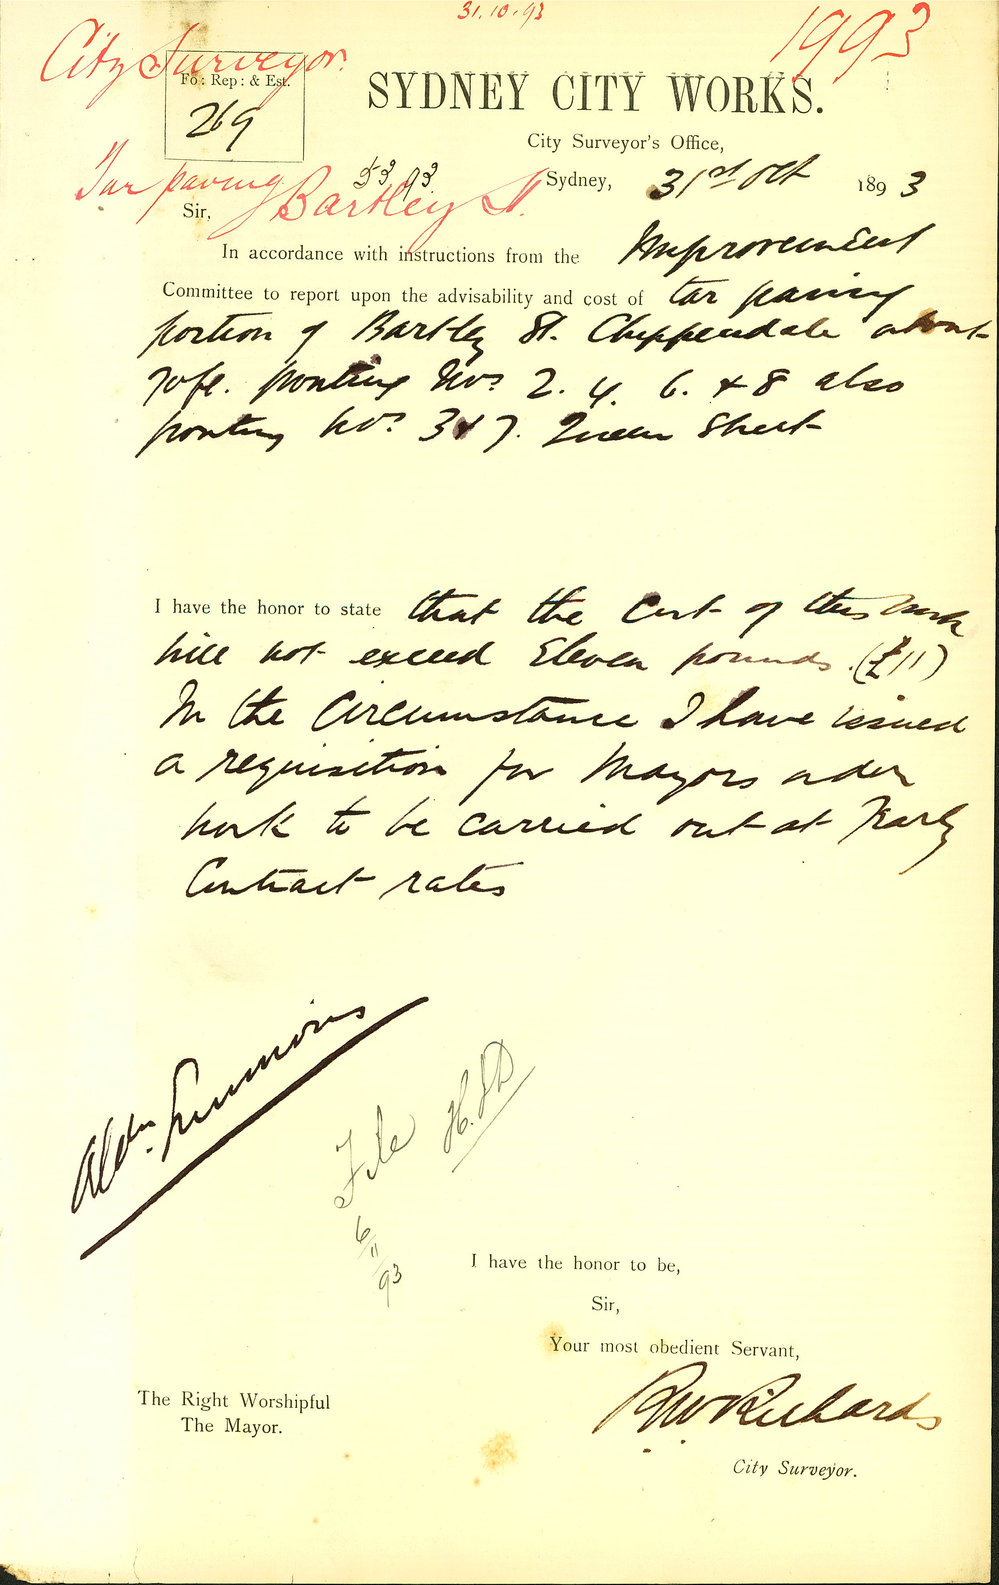 31.10.93
City Surveyor.
1993
Fo: Rep: & Est.
269
SYDNEY CITY WORKS.
City Surveyor's Office,
53 93
Tar paving Bartley St.
Sydney, 31st Oct 1893
Sir,
In accordance with instructions from the Improvement
Committee to report upon the advisability and cost of tar paving
portion of Bartley St. Chippendale about
70ft. fronting Nos. 2. 4. 6. & 8 also
fronting Nos. 3 & 7. Queen Street
I have the honor to state that the Cost of this work
will not exceed Eleven pounds. (£11)
In the Circumstance I have issued
a requisition for Mayors order
work to be carried out at Yearly
Contract rates
Aldn. Simmons
File H.S.D
6/11/93
I have the honor to be,
Sir,
Your most obedient Servant,
The Right Worshipful
The Mayor.
R.W. Richards
City Surveyor.